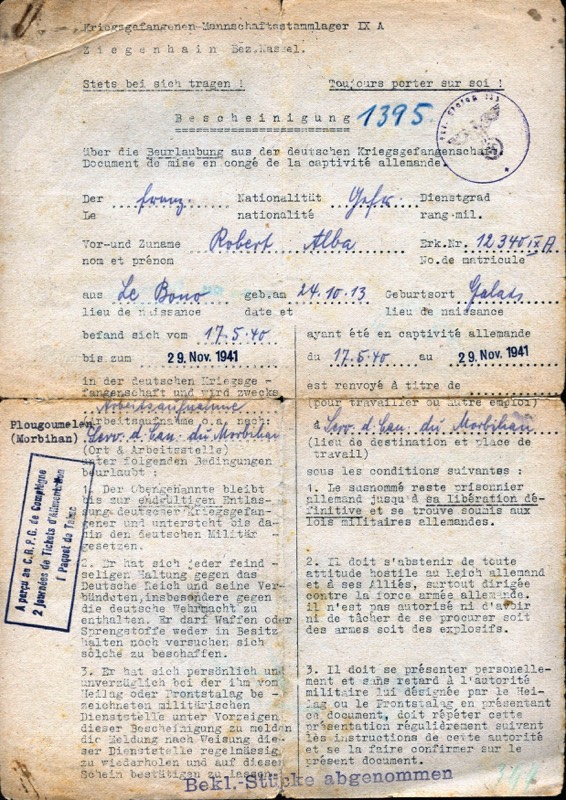 Kriegsgefangenen-Mannschaftsstammlager IX A
Ziegenhain Bez.Kassel.
Stets bei sich tragen ! Toujours porter sur soi !
Bescheinigung 1395
über die Beurlaubung aus der deutschen Kriegsgefangenschaft
Document de mise en congé de la captivité allemande.
Der franz. Nationalität Gefr. Dienstgrad
Le nationalité rang mil.
Vor-und Zuname Robert Alba Erk.Nr. 12340 IX A
nom et prénom No.de matricule
aus Le Bono geb.am 24.10.13 Geburtsort Galats
lieu de naissance date et lieu de naissance
befand sich vom 17.5.40
bis zum 29. Nov. 1941
in der deutschen Kriegsge -
fangenschaft und wird zwecks
Arbeitsaufnahme
Arbeitsaufnahme o.a. nach:
Plougoumelen
(Morbihan)
Serv. d. Can. du Morbihan
(Ort & Arbeitsstelle)
unter folgenden Bedingungen
beurlaubt
1. Der Obengenannte bleibt
bis zur endgültigen Entlas-
sung deutscher Kriegsgefan-
gener und untersteht bis da-
hin den deutschen Militär -
gesetzen.
2. Er hat sich jeder feind -
seligen Haltung gegen das
Deutsche Reich und seine Ver-
bündeten, insbesondere gegen
die deutsche Wehrmacht zu
enthalten. Er darf Waffen oder
Sprengstoffe weder in Besitz
halten noch versuchen sich
solche zu beschaffen.
3. Er hat sich persönlich und
unverzüglich bei der ihm vom
Heilag oder Frontstalag be -
zeichneten militärischen
Dienststelle unter Vorzeigen
dieser Bescheinigung zu melden
die Meldung nach Weisung die-
ser Dienststelle regelmässig
zu wiederholen und auf diese
Schein bestätigen zu lassen.
ayant été en captivité allemande
du 17.5.40 au 29. Nov. 1941
est renvoyé à titre de
(pour travailler ou autre emploi)
à Serv. d. Can. du Morbihan
(lieu de destination et place de
travail)
sous les conditions suivantes :
1. Le susnommé reste prisonnier
allemand jusqu'à sa libération dé-
finitive et se trouve soumis aux
lois militaires allemandes.
2. Il doit s'abstenir de toute
attitude hostile au Reich allemand
et à ses Alliés, surtout dirigée
contre la force armée allemande.
il n'est pas autorisé ni d'avoir
ni de tâcher de se procurer soit
des armes soit des explosifs.
3. Il doit se présenter personelle-
ment et sans retard à l'autorité
militaire lui désignée par le Hei-
lag ou le Frontstalag en présentant
ce document, doit répéter cette
présentation régulièrement suivant
les instructions de cette autorité
et se la faire confirmer sur le
présent document.
A perçu au C.R.P.G. de Compiègne
2 journées de Tickets d'Alimentation
1 Paquet de Tabac
Bekl.-Stücke abgenommen